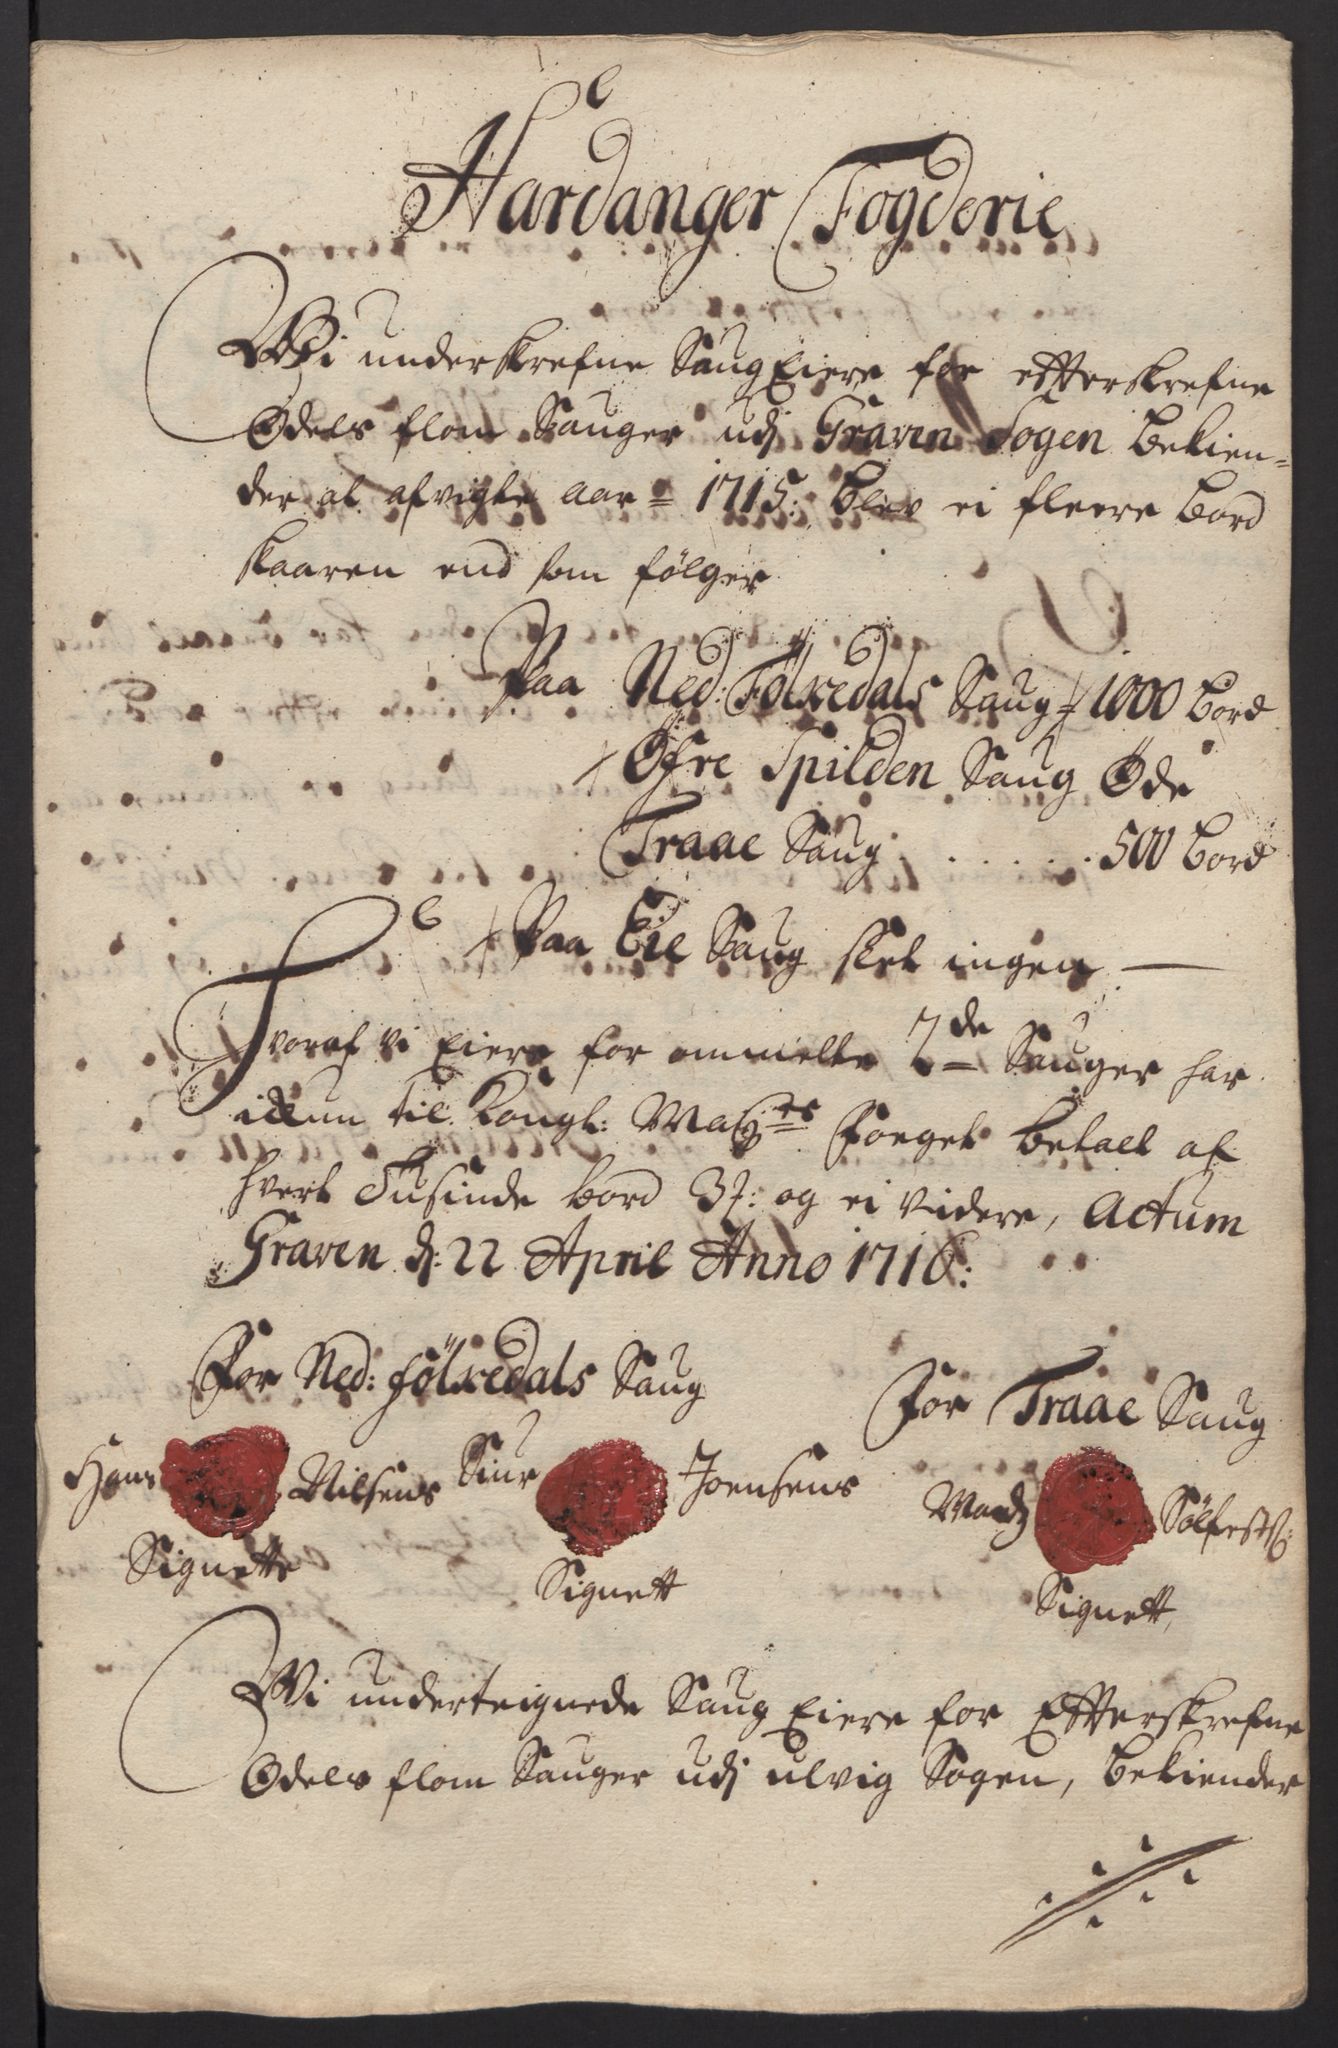 Hardanger Fogderie
Wi underskrefne Saug Eiere for efterskrefne
Odels flom Sauger udj Graven Sogen bekien=
der at afvigte aar = 1715: blev ei fleere bord
skaaren end som følger
Paa Ned: Fölxedals Saug = 1000 bord
Øfre Spilden Saug Øde
Traae Saug . . . . . 500 bord
Paa Eie Saug slet ingen —
hvoraf vi Eiere for ommelte 2de Sauger har
til Kongl: May:ts Foeget betalt af
hvert Tusinde bord 3: og ei videre, Actum
Graven d: 22 April Anno 1716:
For Ned: fölxedals Saug
For Traae Saug
Hans Nilsens Siur Joensens
Madz Sölfests:
Signette
Signett
Signett
Wi underteignede Saug Eiere for Efterskrefne
Odels flom Sauger udj Ulvig Sogen, bekiender